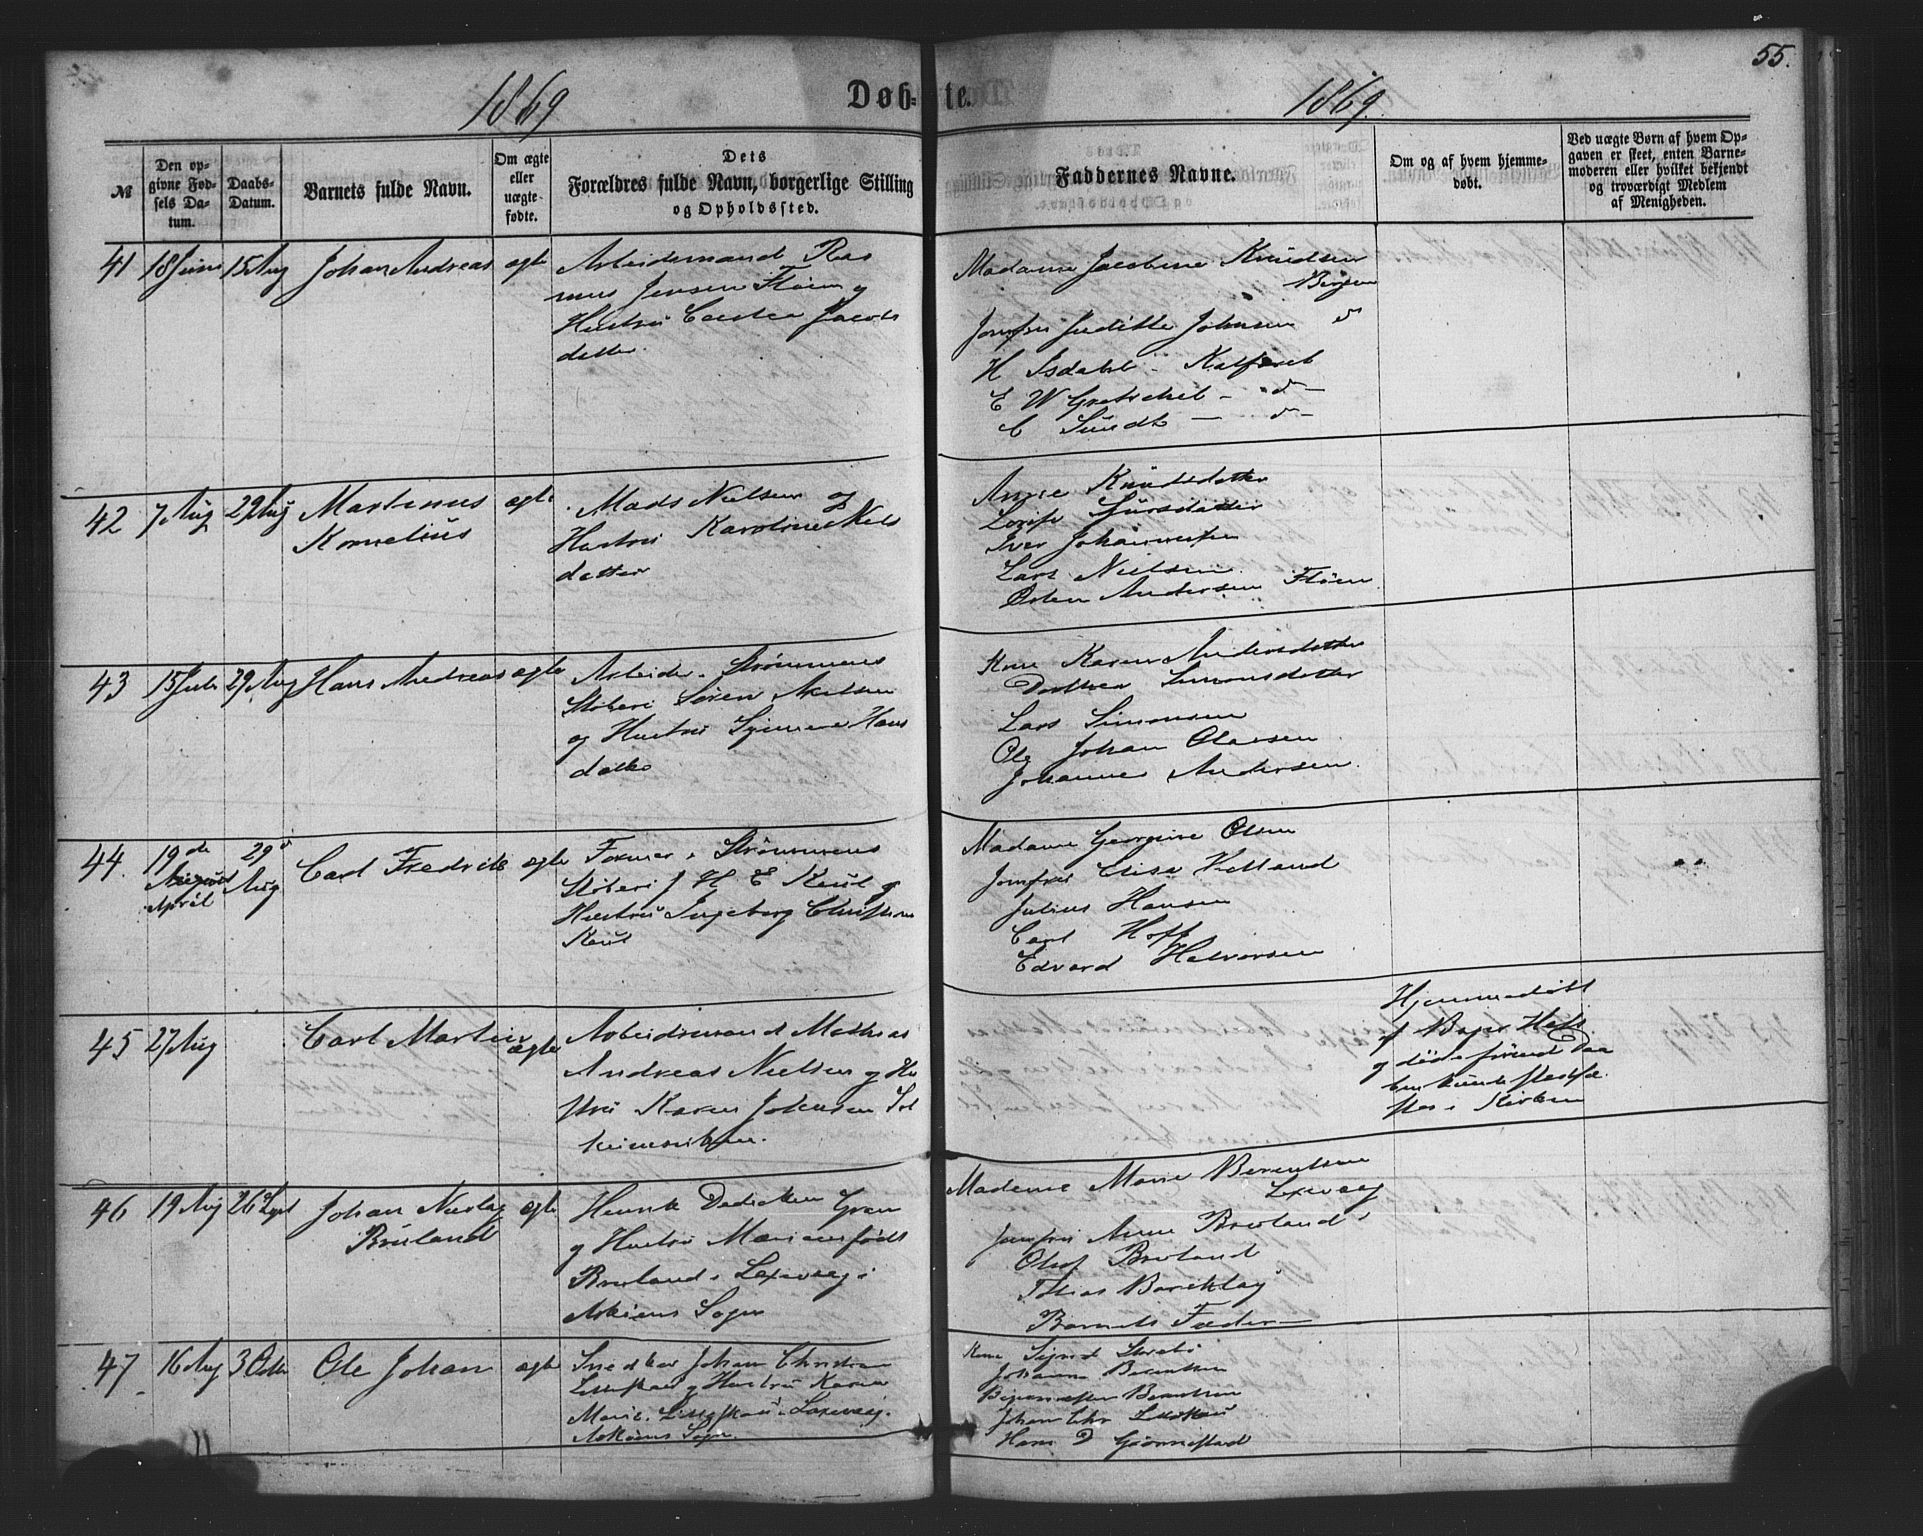 55.
1869
Døb-te.
1869.
№
Den op-
givne Fød-
sels Da-
tum.
Daabs-
Datum.
Barnets fulde Navn.
Om ægte
eller
uægte
fødte.
Dets
Forældres fulde Navn, borgerlige Stilling
og Opholdssted.
Faddernes Navne.
Om og af hvem hjemme-
døbt.
Ved uægte Børn af hvem Op-
gaven er skeet, enten Barne-
moderen eller hvilket bekjendt
og troværdigt Medlem
af Menigheden.
41 18 Juni 15 Aug Johan Andreas ægte
Arbeidsmand Ras
mus Jensen Fløien og
Hustru Jacobs
datter.
Madame Jacobine Knudsen
Bergen
Jomfru Juditte Johnsen do
H Isdahl - Kalfaret
E W Gretschel - do -
C Sundt - do -
42 7 Aug 29 Aug Martinus ægte
Kornelius
Mads Nielsen og
Hustru Karoline Nels
datter
Anne Knudsdatter
Iver Johannesen
Lars Nielsen
Østen Andersen Fløien
43 15 Juli 29 Aug Hans Andreas ægte
Arbeider i Strømmens
Støberi Søren
og Hustru Hans
datter
Kone Karen Andersdatter
Dorthea Simonsdatter
Lars Simonsen
Ole Johan Olaesen
Johannes Andersen.
44. 19de 29d Carl Fredrik ægte
August Aug
April
Former i Strømmens
Støberi J H E Keul og
Hustru Ingeborg Christine
Keul
Madame Georgine Olsen
Jomfru Elisa Kielland
Julius Hansen
Carl Hoff
Edvard Halvorsen
45 27 Aug Carl Martin ægte
Arbeidsmand Mathias
Andreas Nielsen og Hu
stru Karen Johnsen Sol
heimsviken.
Hjemmedøbt
af
og døde førend Daa
ben kunde stadfæ
stes i Kirken
46 19 Aug 26 Sept Johan Nicolay ægte
Bruland
Henrik Dedicken Gran
og Hustru Mariane født
Bruland i Laxevaag i
Askøens Sogn
Madame Marie Berentsen
Laxevaag
Jomfru Anne Bruland do
Oluf Bruland
Tobias Barcklay
Barnets Fader
47 16 Aug 3 Octbr Ole Johan ægte
Snedker Johan Christian
og Hustru Karen
Marie Laxevaag.
Askøens Sogn.
Kone Sigrid
Johanna Berentsen
Berentsen
Johan Chr
Hans D Grønnestad